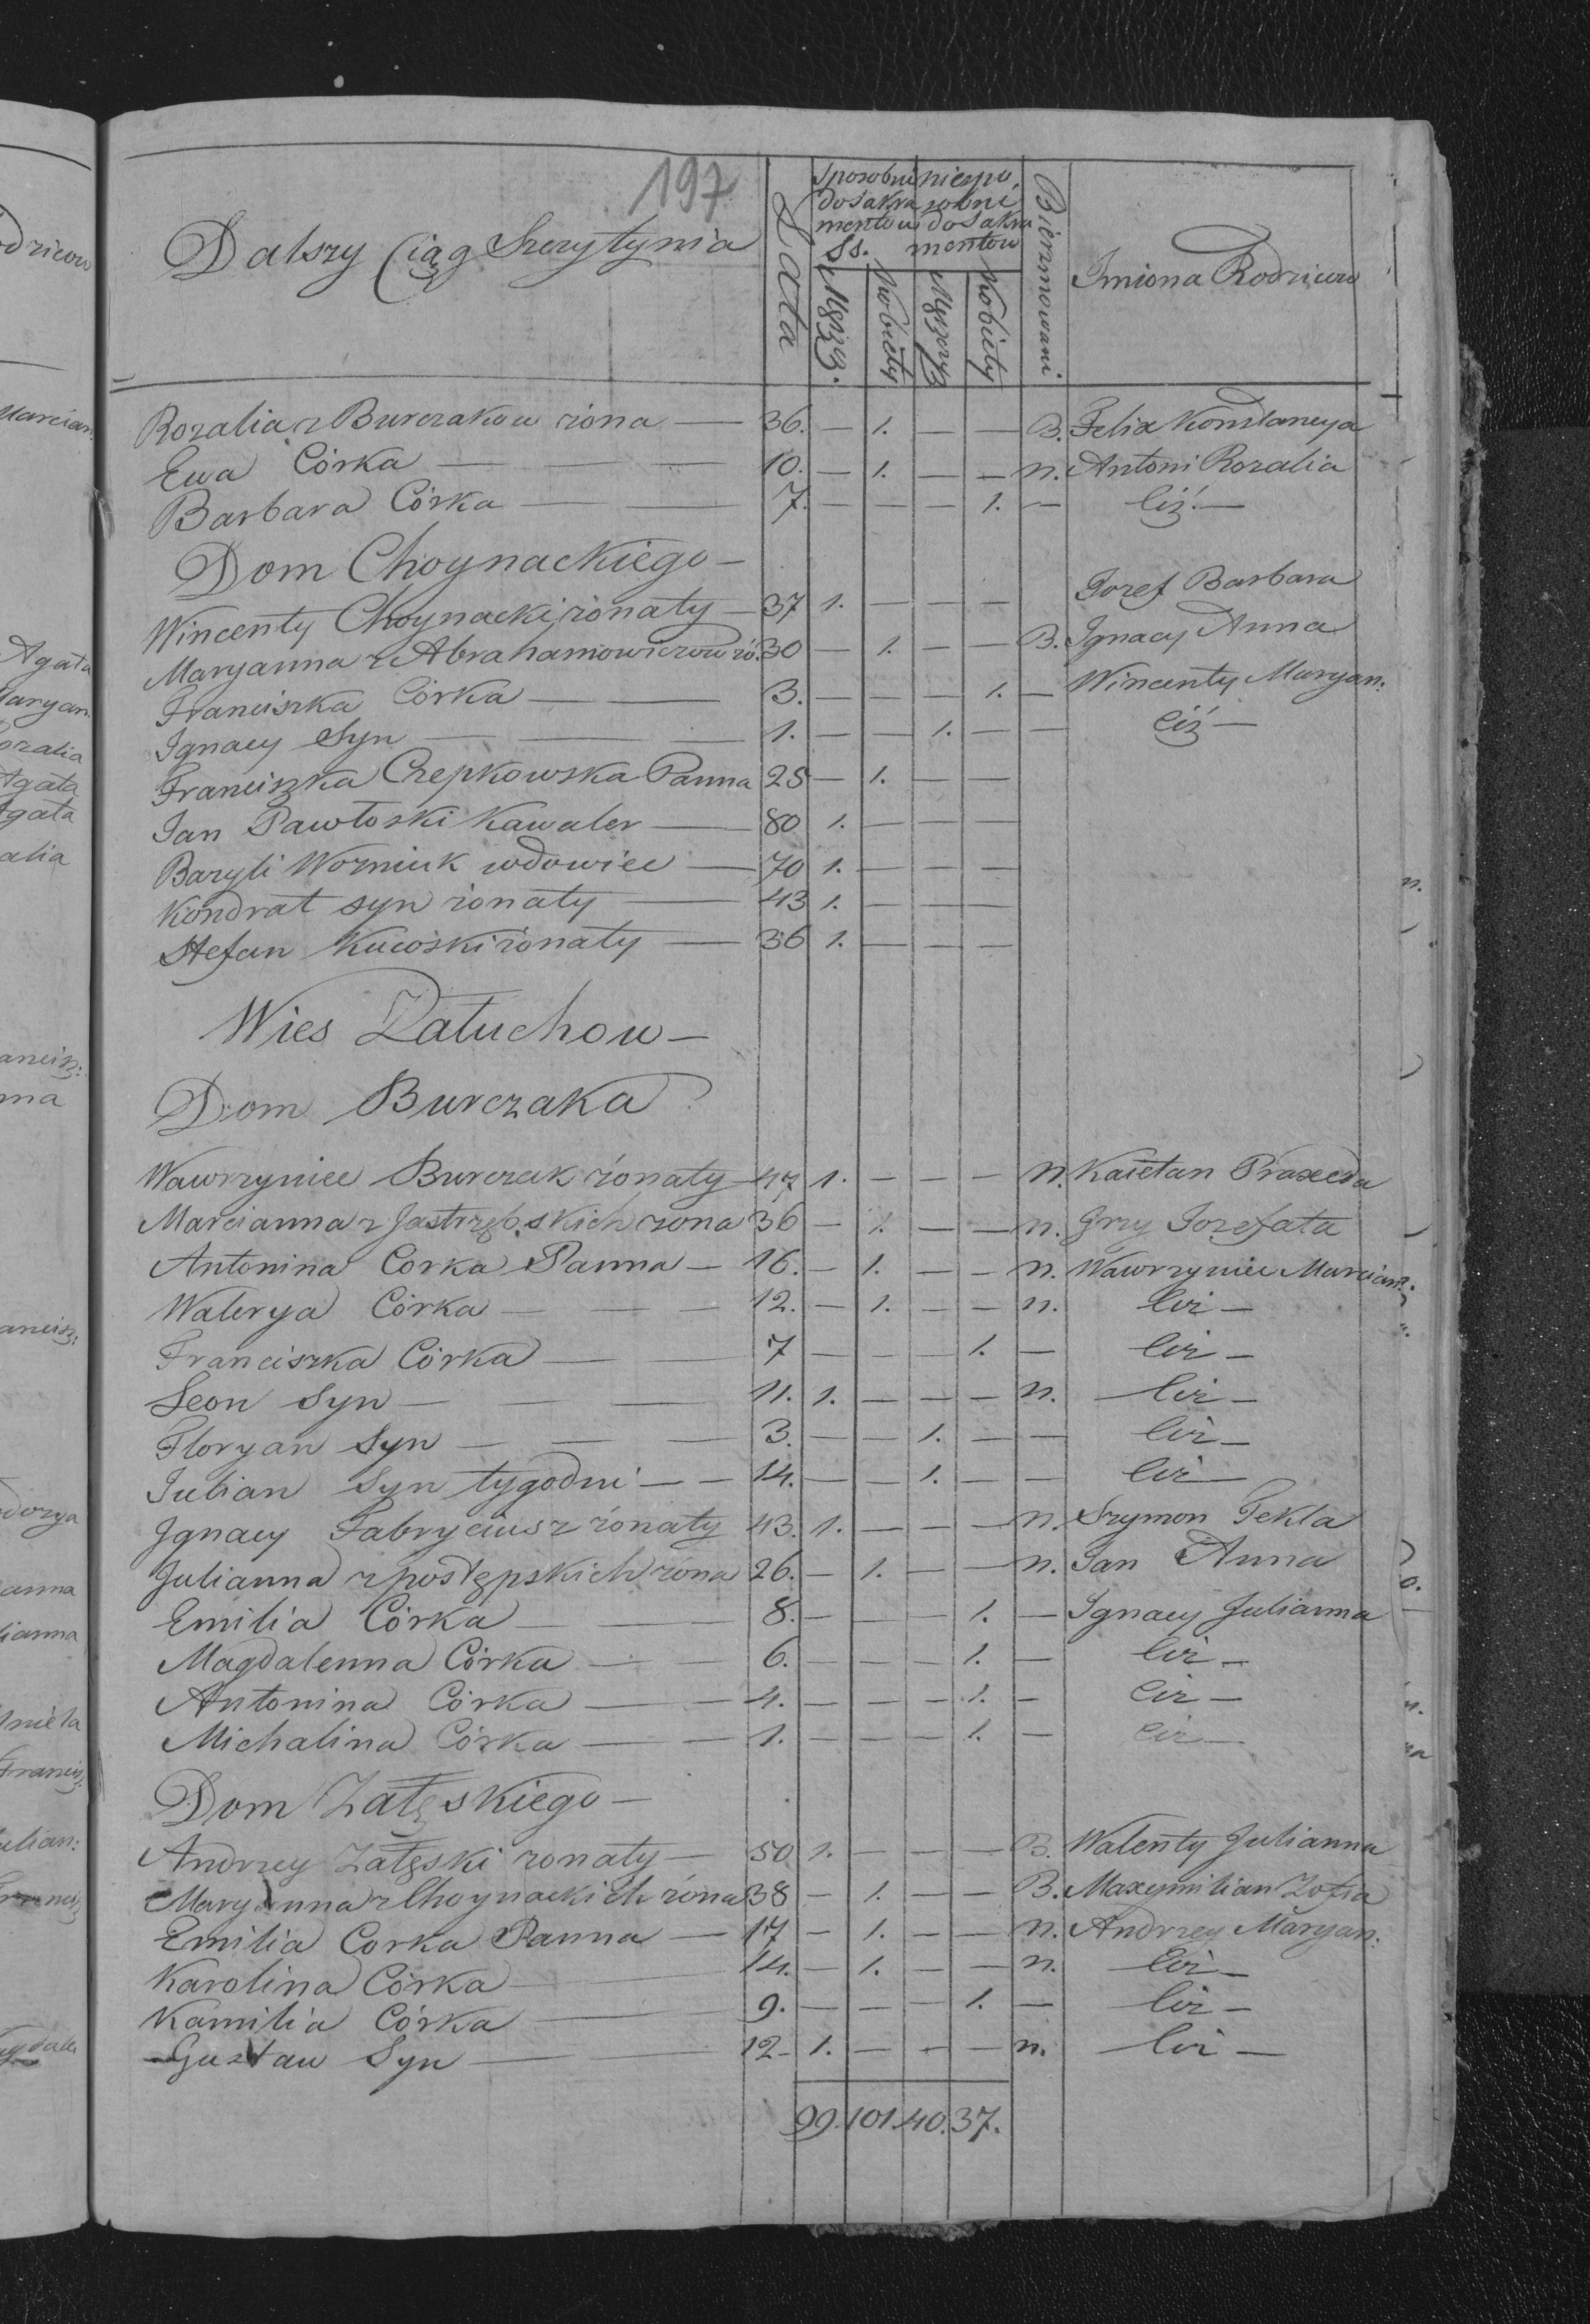 197
Dalszy Ciąg Szczytynia
Lata
Sposobni do Sakramentow SS.
niesposobni do Sakramentow
Męzcz.
Kobiety
Męzczyz
Kobiety
Bierzmowani
Imiona Rodzicow
Rozalia z Burczakow żona — 36. — 1. — — B. Felix Konstancya
Ewa Córka — — — 10. — 1. — — n. Antoni Rozalia
Barbara Córka — — 7. — — — 1. — Ciż. —
Dom Choynackiego —
Wincenty Choynacki żonaty — 37 1. — — — Jozef Barbara
Maryanna z Abrahamowiczow żo. 30 — 1. — — B. Ignacy Anna
Franciszka Córka — — 3. — — — 1. — Wincenty Maryan:
Ignacy Syn — — — 1. — — 1. — — Ciż —
Franciszka Czepkowska Panna 25 — 1. — —
Jan Pawłoski Kawaler — 80 1. — — —
Bazyli Wozniuk wdowiec — 70 1. — — —
Kondrat syn żonaty — 43 1. — — —
Stefan Kucoski żonaty — 36 1. — — —
Wies Załuchow —
Dom Burczaka
Wawrzyniec Burczak żonaty 47 1. — — — n. Kaietan Praxeda
Marcianna z Jastrzębskich zona 36 — 1. — — n. Grzy Jozefata
Antonina Corka Panna — 16. — 1. — — n. Wawrzyniec Marcian:
Walerya Córka — — — 12. — 1. — — n. Ciż —
Franciszka Córka — — 7 — — — 1. — Ciż —
Leon Syn — — — 11. 1. — — — n. Ciż —
Floryan Syn — — — 3. — — 1. — — Ciż —
Julian Syn tygodni — — 14. — — 1. — — Ciż —
Ignacy Fabryciusz żonaty 43. 1. — — — n. Szymon Tekla
Julianna z postępskich żona 26. — 1. — — n. Jan Anna
Emilia Córka — — 8. — — — 1. — Ignacy Julianna
Magdalenna Córka — — 6. — — — 1. — Ciż —
Antonina Córka — — 4. — — — 1. — Ciż —
Michalina Córka — — 1. — — — 1. — Ciż —
Dom Załęskiego —
Andrzey Załęski zonaty — 50 1. — — — B. Walenty Julianna
Maryanna z Choynackich żona 38 — 1. — — B. Maxymilian Zofia
Emilia Corka Panna — 17 — 1. — — n. Andrzey Maryan:
Karolina Córka — 14. — 1. — — n. Ciż —
Kamilia Córka — 9. — — — 1. — Ciż —
Gustaw Syn — — 12 — 1. — — — n. Ciż —
99. 101. 40. 37.